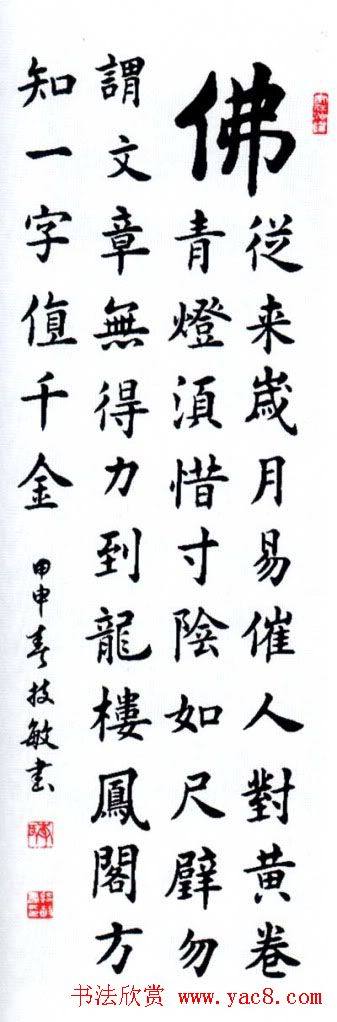 佛
従来嵗月易催人對黄卷
青燈須惜寸陰如尺璧勿
謂文章無得力到龍樓鳳閣方
知一字值千金
甲申春技敏書
书法欣赏 www.yac8.com